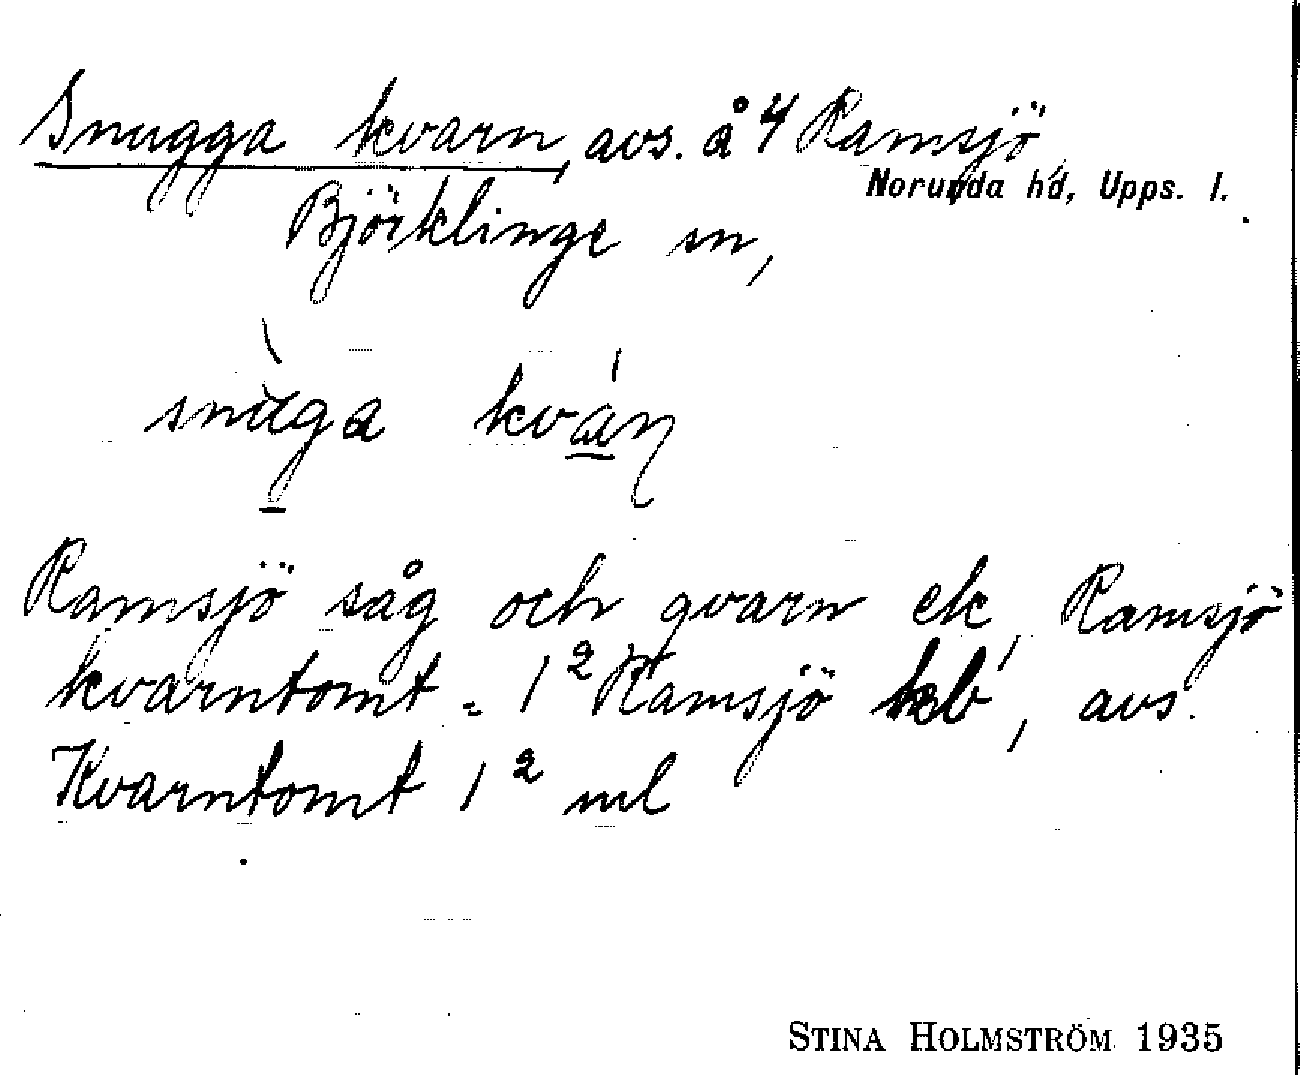 Snugga kvarn, avs. å 4 Ramsjö,
Norunda hd, Upps. l.
Björklinge sn,
snùga kván
Ramsjö såg och qvarn ek, Ramsjö
kvarntomt = 1² Ramsjö kb, avs.
Kvarntomt 1² ml
STINA HOLMSTRÖM 1935